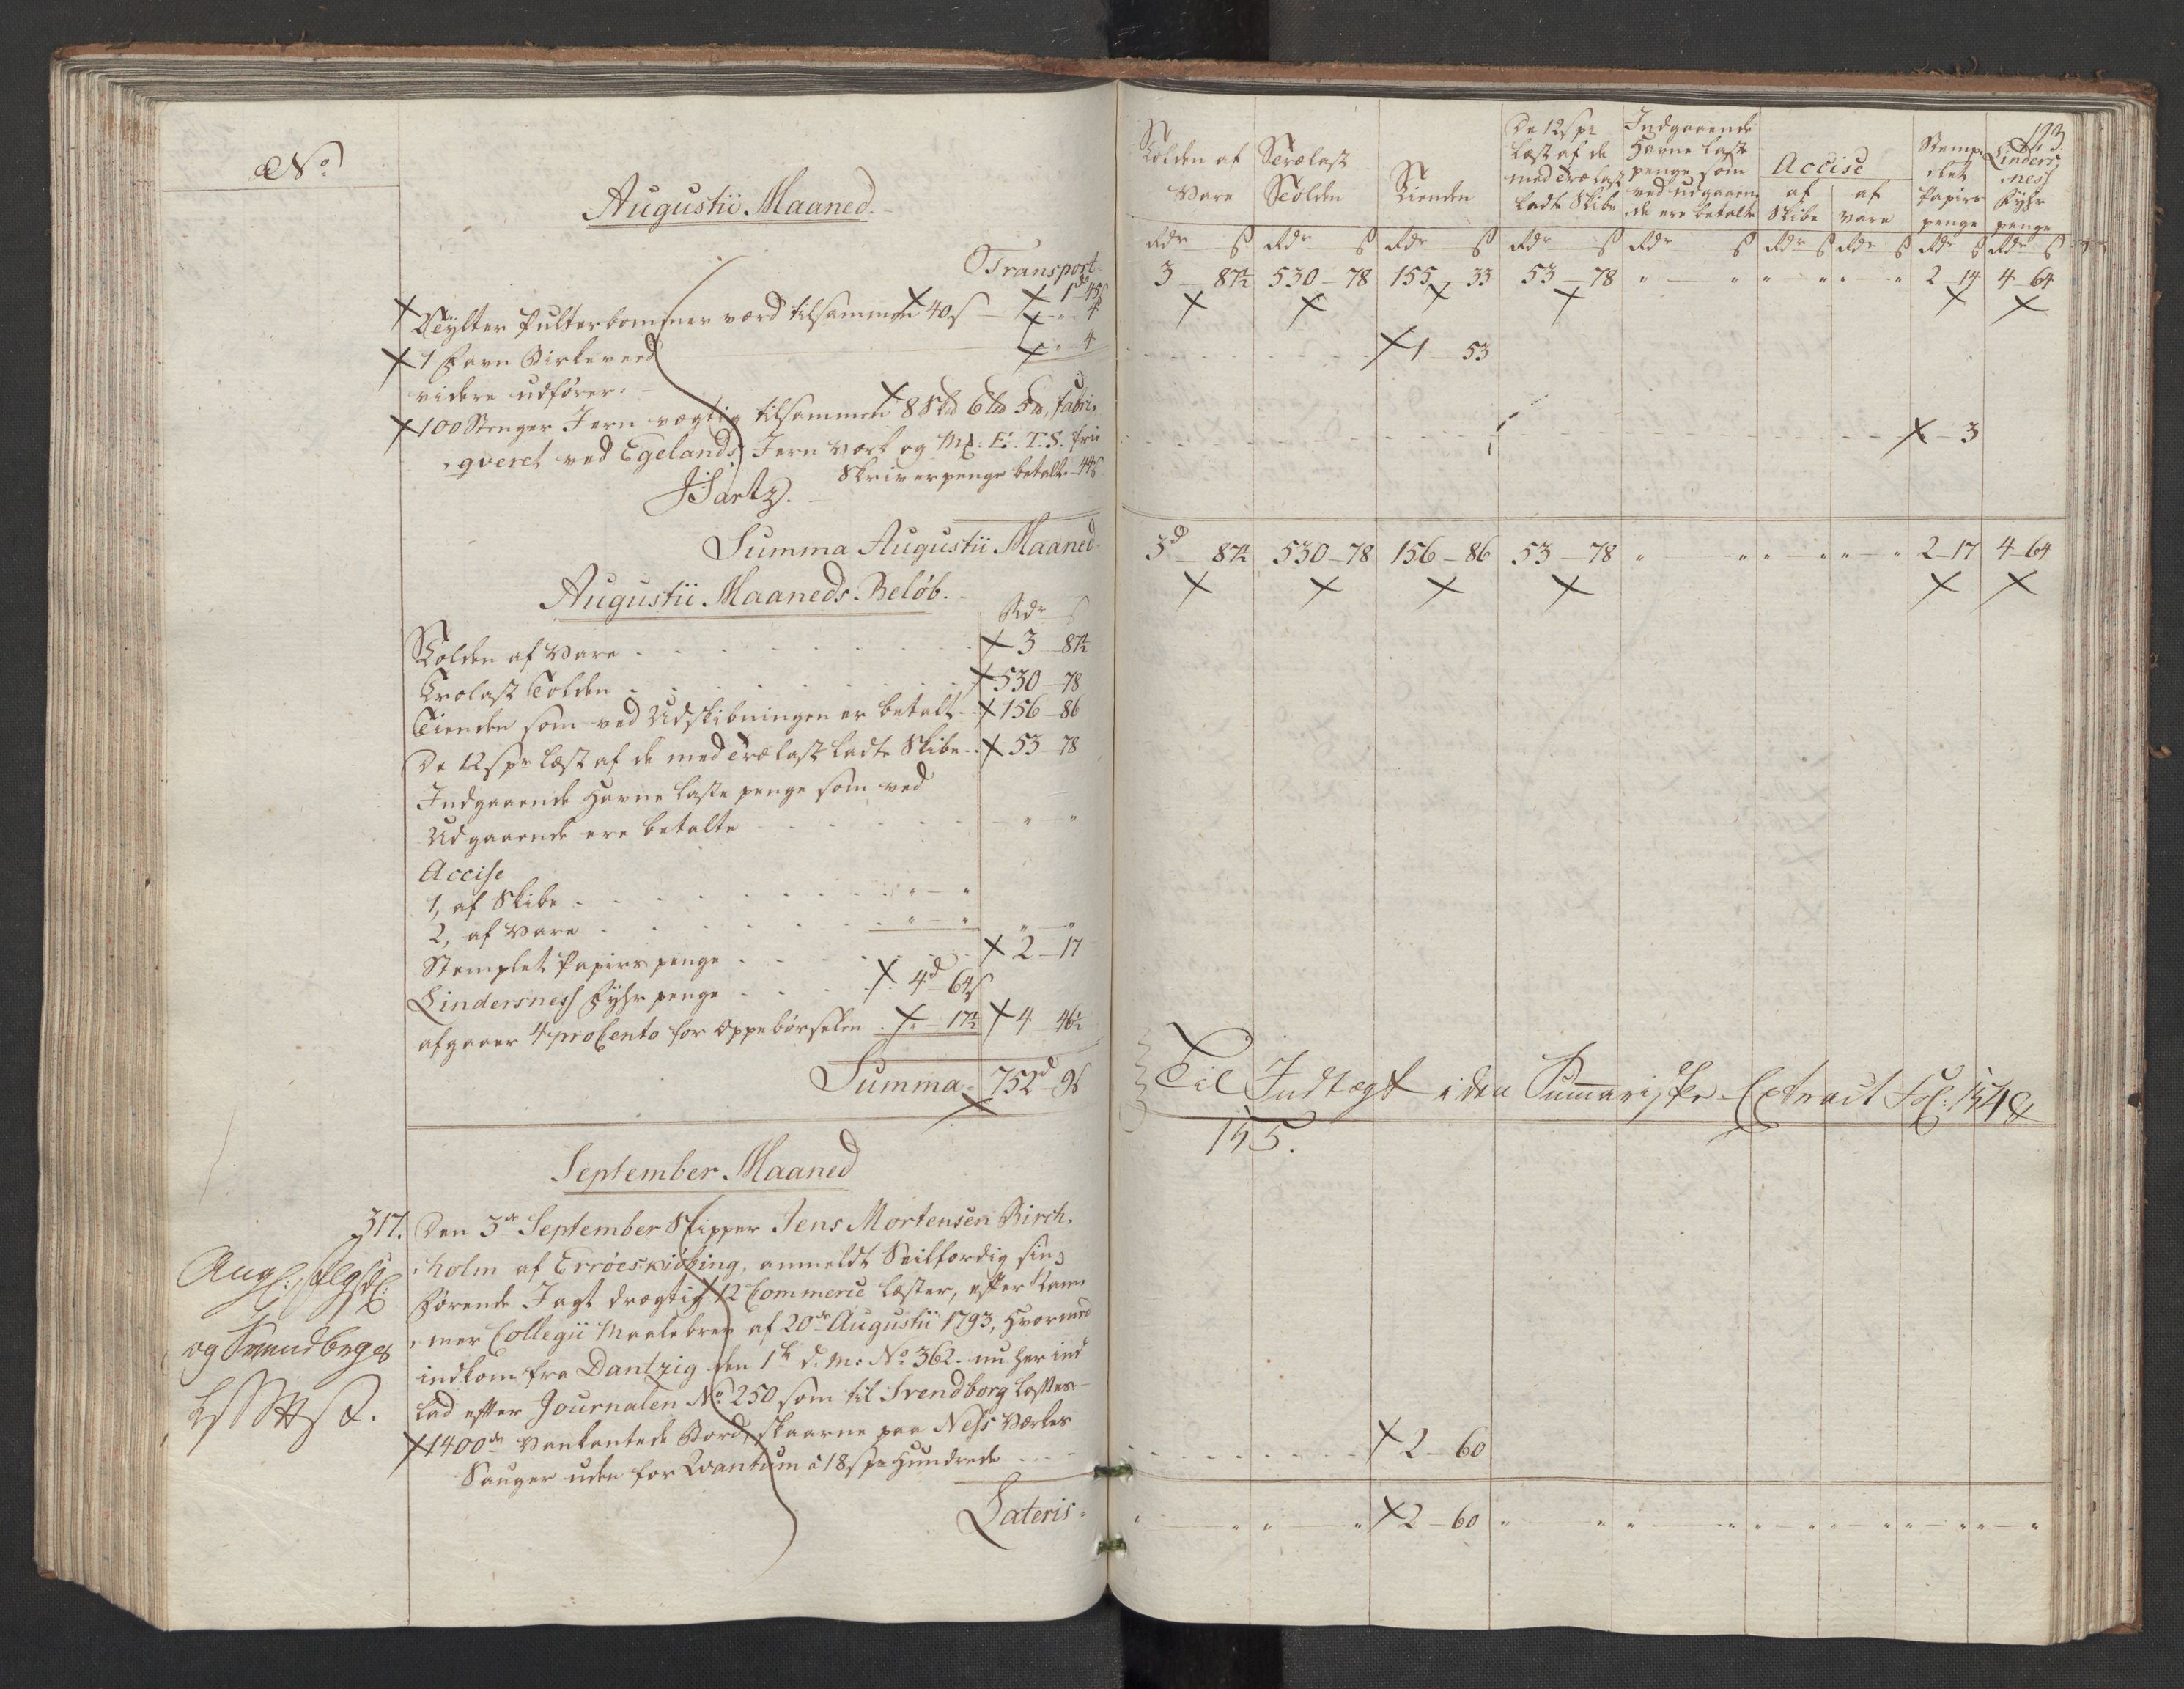 No
Augustii Maaned.
Transport
1d 45s
Tylter Pulterbommer værd tilsammen 40s — " 4
1 Favn Birkeveed " 4
videre udfører:
100 Stenger Jern vægtig tilsammen 8 Skd 6 Ld 5 d, fabri,
qveret ved Egelands Jern Værk og Mx. E. T. S. frie
Skriverpenge betalt 44s
Summa Augustii Maaned
Augustii Maaneds Beløb.
Rdr s
Tolden af Vare 3 87½
Trælast Tolden 530 78
Tienden som ved Udskibningen er betalt 156 86
De 12 s pr Læst af de med Trælast ladte Skibe 53 78
Indgaaende Havne Laste penge som ved
Udgaaende ere betalte " "
Accise
1, af Skibe " — "
2, af Vare " — " " "
Stemplet Papirs penge 2 — 17
Lindersness Fyhr penge 4d 64s
afgaaer 4 pro Cento for oppebørselen " 17½ 4 46½
Summa 752d 9s
September Maaned
317. Den 3de September Skipper Jens Mortensen Birch,
holm af Erröeskiöbing, anmeldt Seilfærdig sin
førende Jagt drægtig 12 Commerce Læster, efter Kam,
mer Collegii Maalebrev af 20de Augustii 1793, hvormed
indkom fra Dantzig den 1ste d: M: No 362. nu her ind
lad efter Journalen No 250 som til Svendborg lastes
1400de Vankantede Bord, skaarne paa Ness Værkes
Sauger uden for Qvantum á 18 s pr Hundrede
Lateris
og Svendborgs
193
Tolden af Vare
Trælast Tolden
Tienden
De 12 s pr Læst af de med Trælast ladte Skibe
Indgaaende Havne Laste penge som ved udgaaen,de ere betalte
Accise
af Skibe
af Vare
Stemp,let Papirs penge
Linders,ness Fyhr penge
Rdr s Rdr s Rdr s Rdr s Rdr s Rdr s Rdr s Rdr s Rdr s
3 — 87½ 530 — 78 155 — 33 53 — 78 " — " " — " " — " 2 — 14 4 — 64
1 — 53
— 3
3d — 87½ 530 — 78 156 — 86 53 — 78 " " " — " " — " 2 — 17 4 — 64
Til Indtægt i den Summariske Extract Fol: 154 &
155.
2 — 60
" — " " — " 2 — 60 " — " " — " " — " " — " " — " " — "